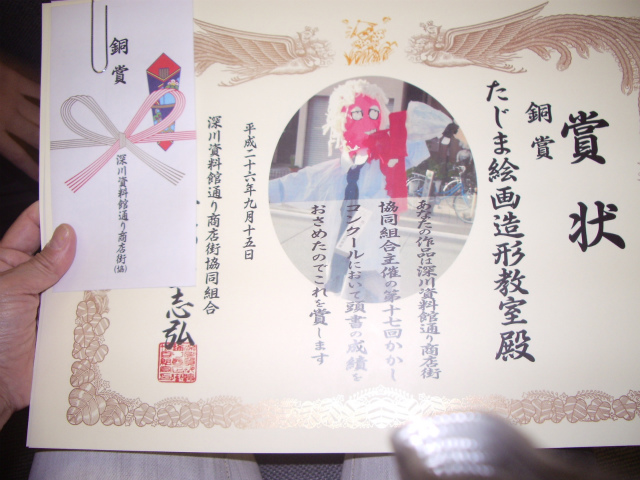 賞状
銅賞
たじま絵画造形教室殿
あなたの作品は深川資料館通り商店街
協同組合主催の第十七回かかし
コンクールにおいて頭書の成績を
おさめたのでこれを賞します
平成二十六年九月十五日
深川資料館通り商店街協同組合
志弘
銅賞
深川資料館通り商店街(協)